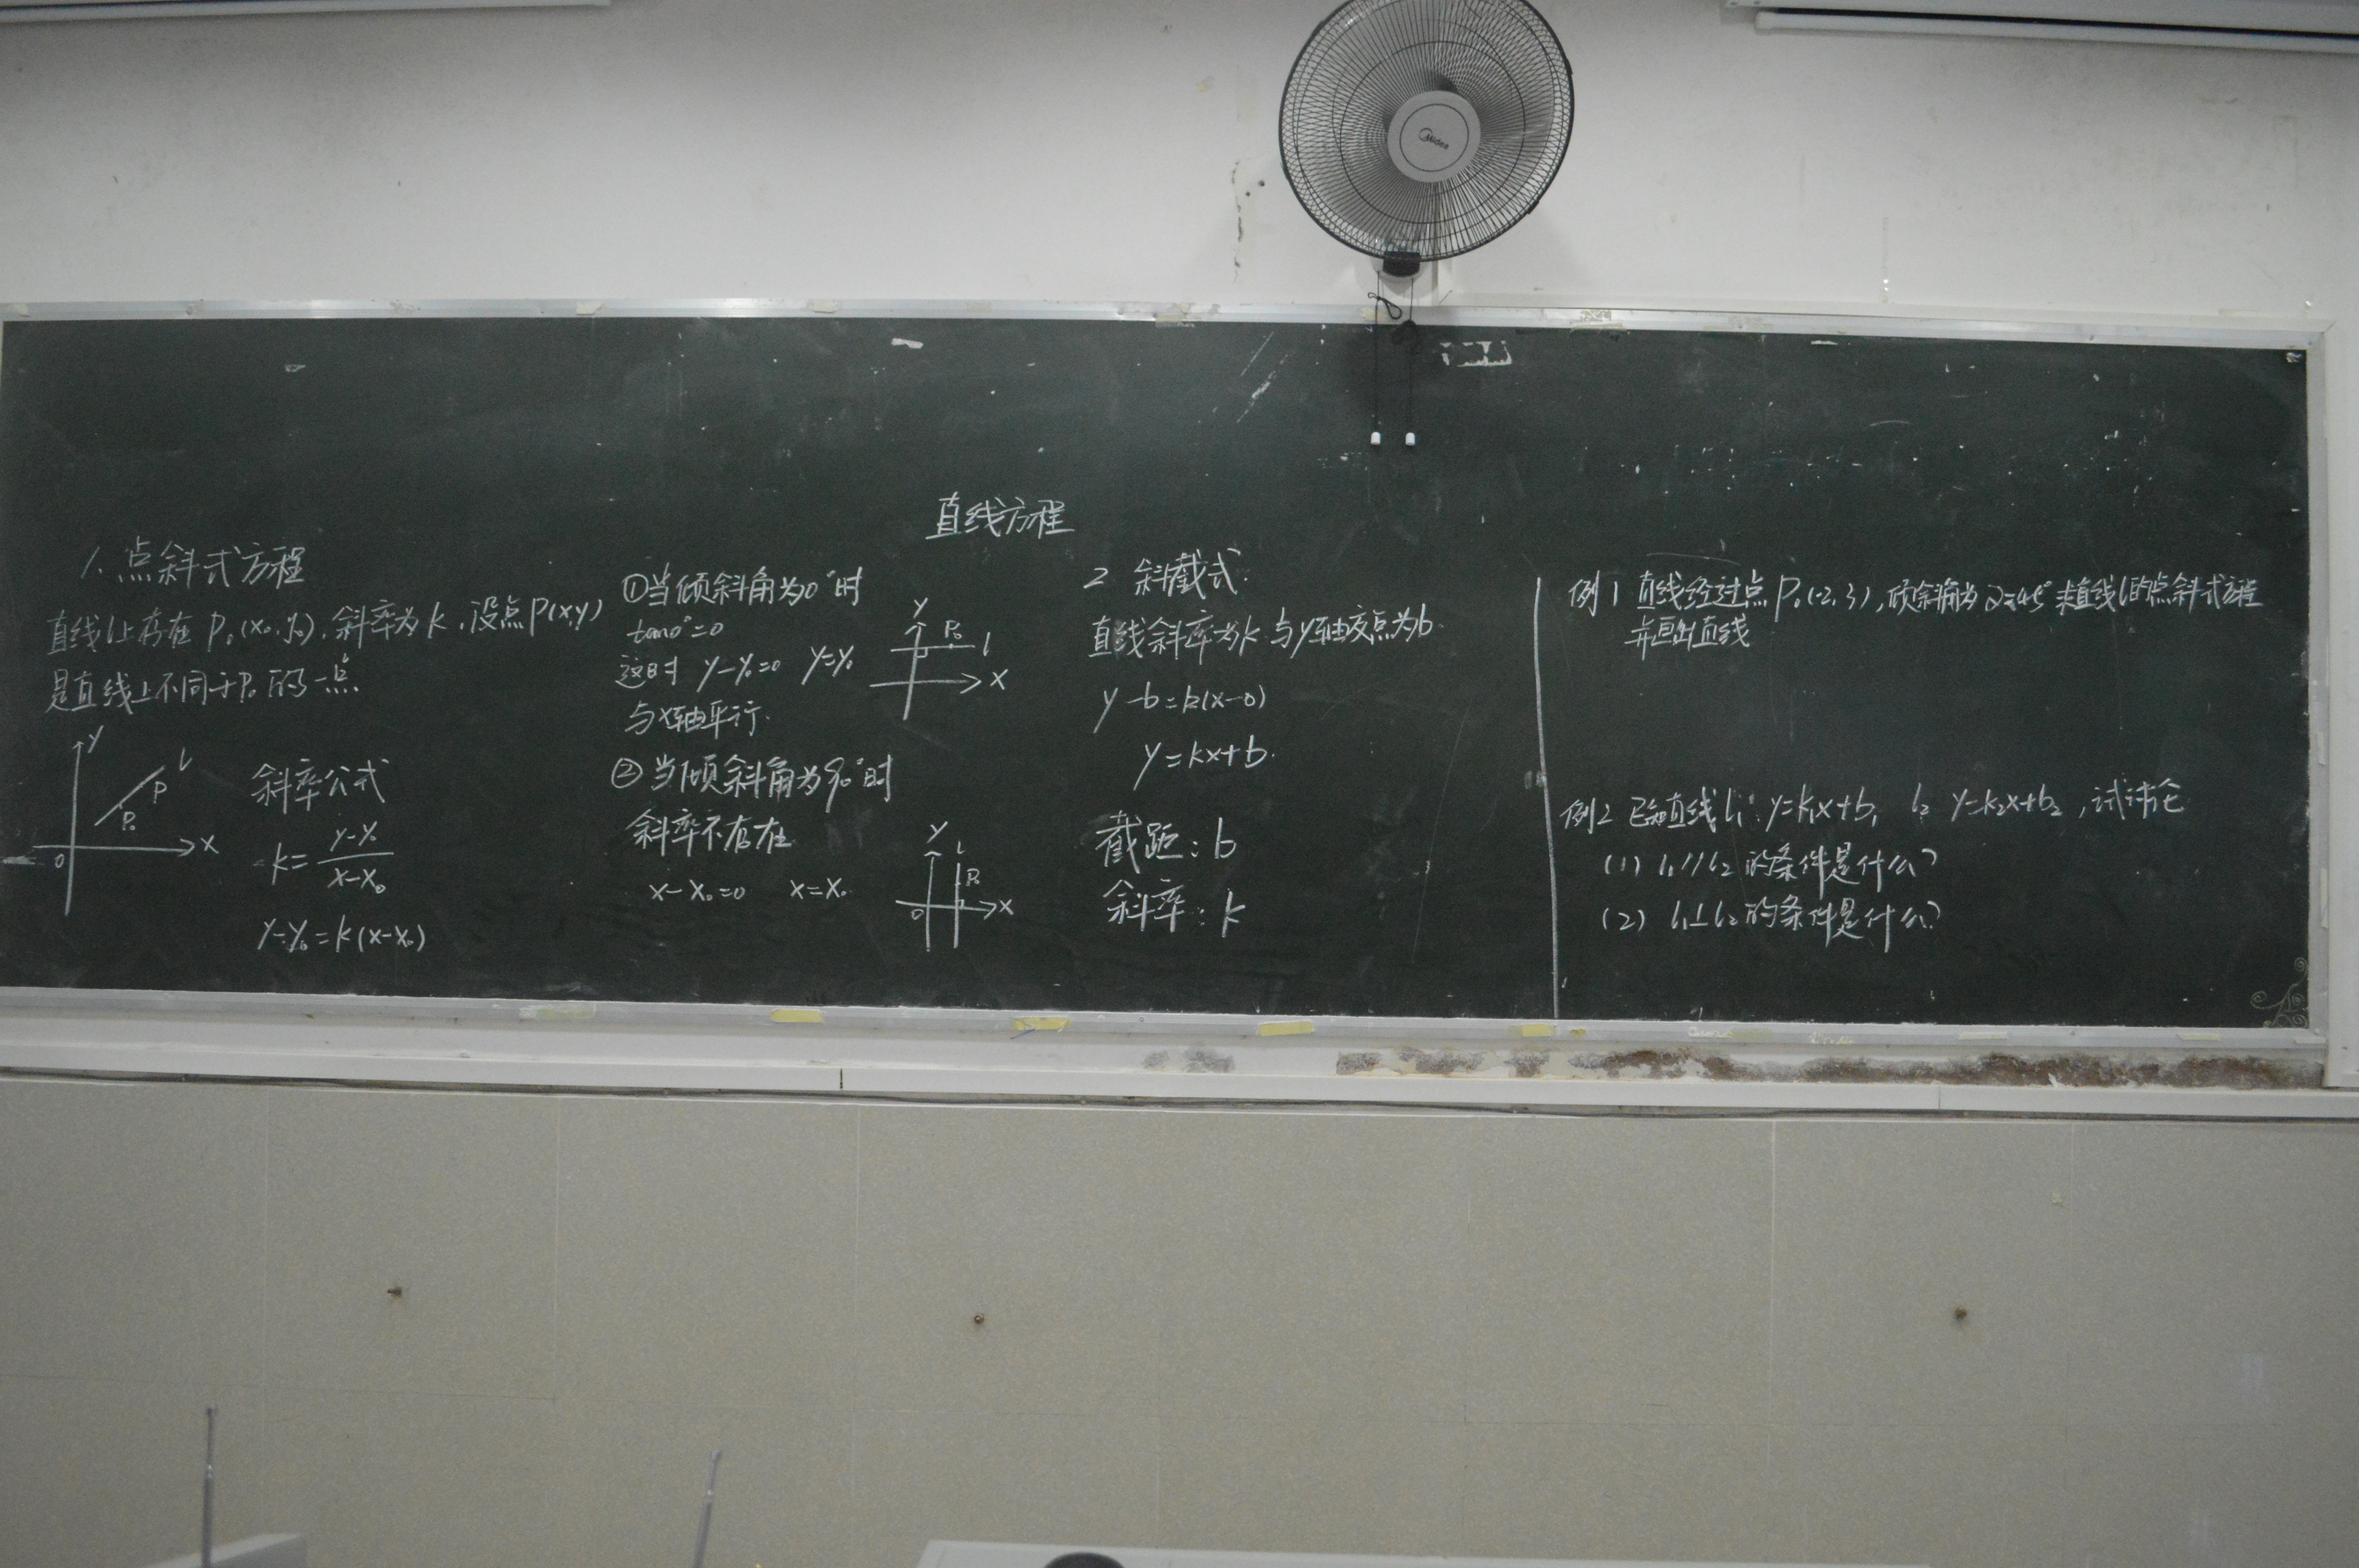 Midea
直线方程
1.点斜式方程
直线l上存在P₀(x₀,y₀),斜率为k,设点P(x,y)
是直线上不同于P₀的一点.
y
l
P
P₀
x
0
斜率公式
k=(y-y₀)/(x-x₀)
y-y₀=k(x-x₀)
①当倾斜角为0°时
tan0°=0
这时 y-y₀=0 y=y₀
与x轴平行.
y
P₀
l
x
②当倾斜角为90°时
斜率不存在
x-x₀=0 x=x₀
y
l
P₀
x
0
2 斜截式.
直线斜率为k 与y轴交点为b.
y-b=k(x-0)
y=kx+b.
截距:b
斜率:k
例1 直线经过点P₀(-2,3),倾斜角为α=45° 求直线l的点斜式方程
并画出直线
例2 已知直线l₁:y=k₁x+b₁ l₂ y=k₂x+b₂,试讨论
(1) l₁//l₂的条件是什么?
(2) l₁⊥l₂的条件是什么?